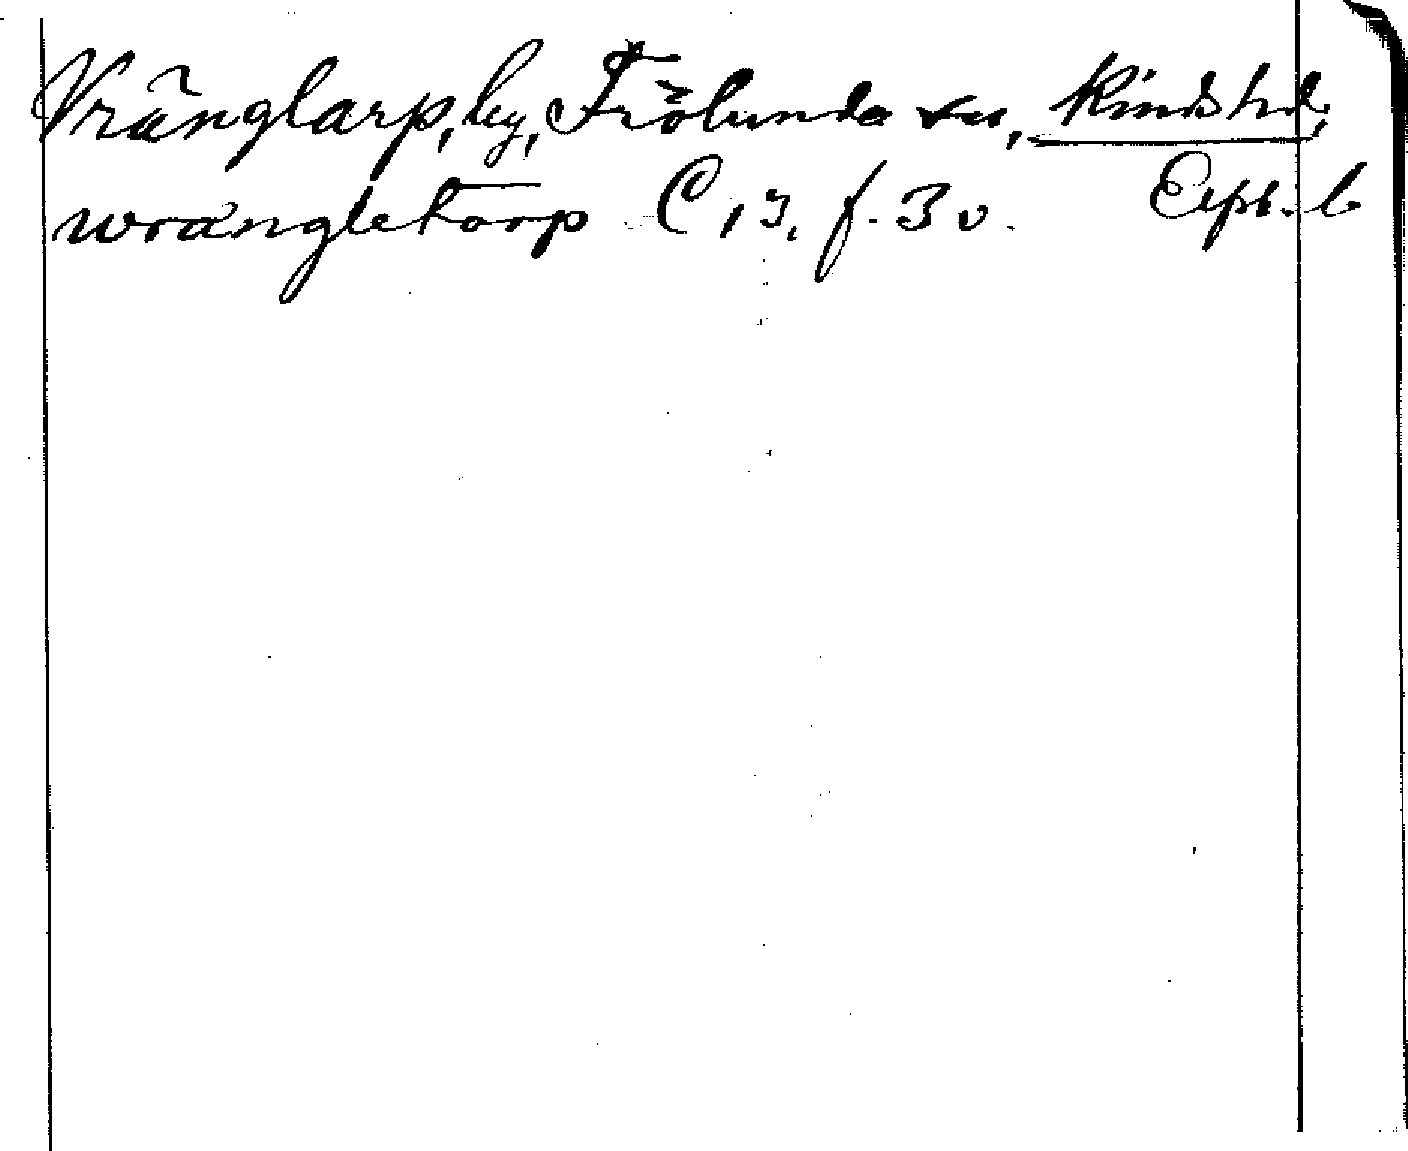 Vränglarp, by, Frölunda sn, Kinds hd,
wrangletorp C 13, f. 3 v. Expl. b